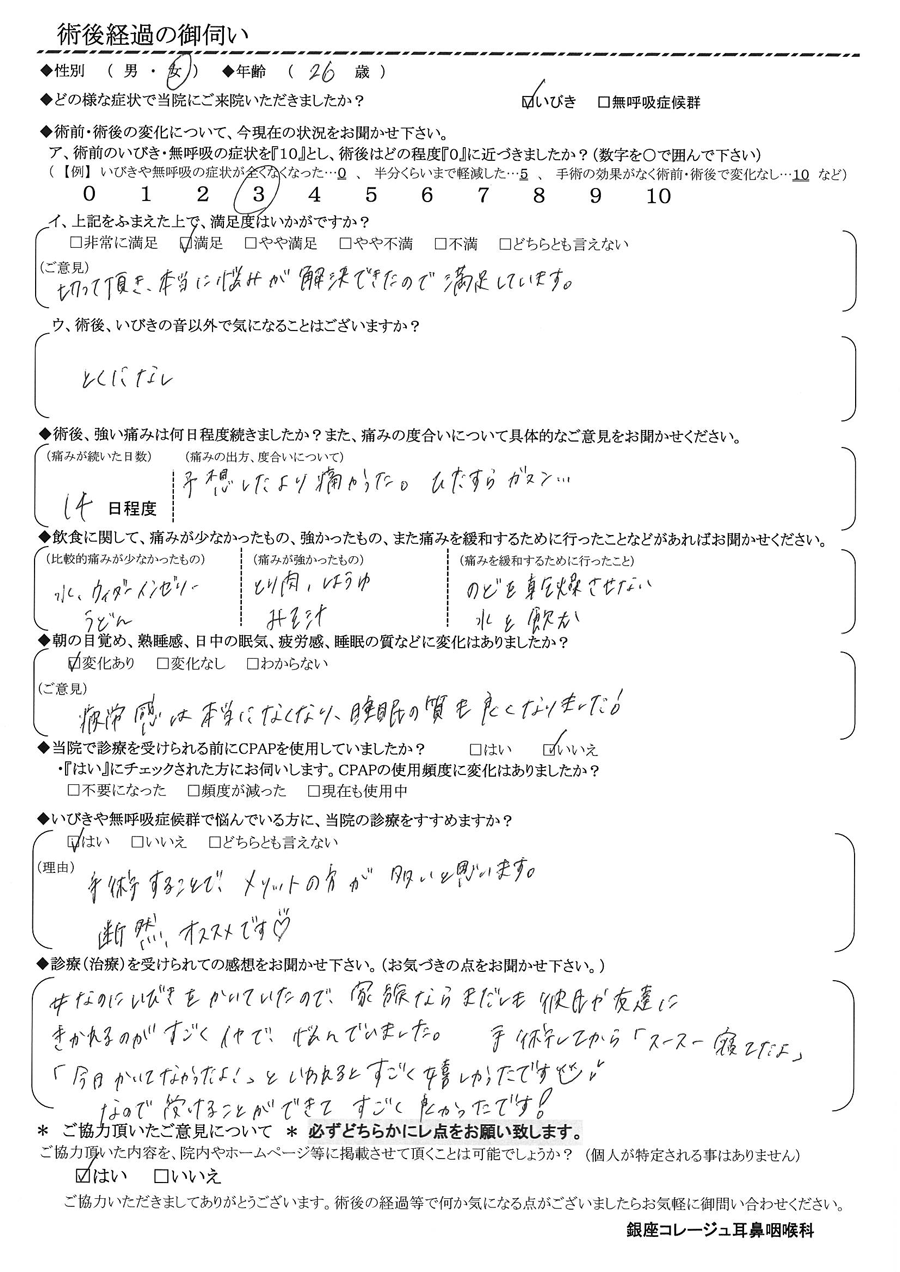 術後経過の御伺い
◆性別 （ 男 ・ 女 ） ◆年齢 （ 26 歳 ）
◆どの様な症状で当院にご来院いただきましたか？ ☑いびき □無呼吸症候群
◆術前・術後の変化について、今現在の状況をお聞かせ下さい。
ア、術前のいびき・無呼吸の症状を『10』とし、術後はどの程度『0』に近づきましたか？（数字を〇で囲んで下さい）
（ 【例】 いびきや無呼吸の症状が全くなくなった…0 、 半分くらいまで軽減した…5 、 手術の効果がなく術前・術後で変化なし…10 など）
0 1 2 3 4 5 6 7 8 9 10
イ、上記をふまえた上で、満足度はいかがですか？
□非常に満足 ☑満足 □やや満足 □やや不満 □不満 □どちらとも言えない
（ご意見）
切って頂き、本当に悩みが解決できたので満足しています。
ウ、術後、いびきの音以外で気になることはございますか？
とくになし
◆術後、強い痛みは何日程度続きましたか？また、痛みの度合いについて具体的なご意見をお聞かせください。
（痛みが続いた日数） （痛みの出方、度合いについて）
予想したより痛かった。ひたすらガマン…
14 日程度
◆飲食に関して、痛みが少なかったもの、強かったもの、また痛みを緩和するために行ったことなどがあればお聞かせください。
（比較的痛みが少なかったもの） （痛みが強かったもの） （痛みを緩和するために行ったこと）
水、ウィダーインゼリー とり肉、しょうゆ のどを乾燥させない
うどん みそ汁 水を飲む
◆朝の目覚め、熟睡感、日中の眠気、疲労感、睡眠の質などに変化はありましたか？
☑変化あり □変化なし □わからない
（ご意見）
疲労感は本当になくなり、睡眠の質も良くなりました！
◆当院で診療を受けられる前にCPAPを使用していましたか？ □はい ☑いいえ
・『はい』にチェックされた方にお伺いします。CPAPの使用頻度に変化はありましたか？
□不要になった □頻度が減った □現在も使用中
◆いびきや無呼吸症候群で悩んでいる方に、当院の診療をすすめますか？
☑はい □いいえ □どちらとも言えない
（理由）
手術することで、メリットの方が多いと思います。
断然、オススメです♡
◆診療（治療）を受けられての感想をお聞かせ下さい。（お気づきの点をお聞かせ下さい。）
女なのにいびきをかいていたので、家族ならまだしも彼氏や友達に
きかれるのがすごくイヤで、悩んでいました。 手術してから「スースー寝てたよ」
「今日かいてなかったよ！」といわれるとすごく嬉しかったです♡♪
なので受けることができてすごく良かったです！
＊ ご協力頂いたご意見について ＊ 必ずどちらかにレ点をお願い致します。
ご協力頂いた内容を、院内やホームページ等に掲載させて頂くことは可能でしょうか？ （個人が特定される事はありません）
☑はい □いいえ
ご協力いただきましてありがとうございます。術後の経過等で何か気になる点がございましたらお気軽に御問い合わせください。
銀座コレージュ耳鼻咽喉科